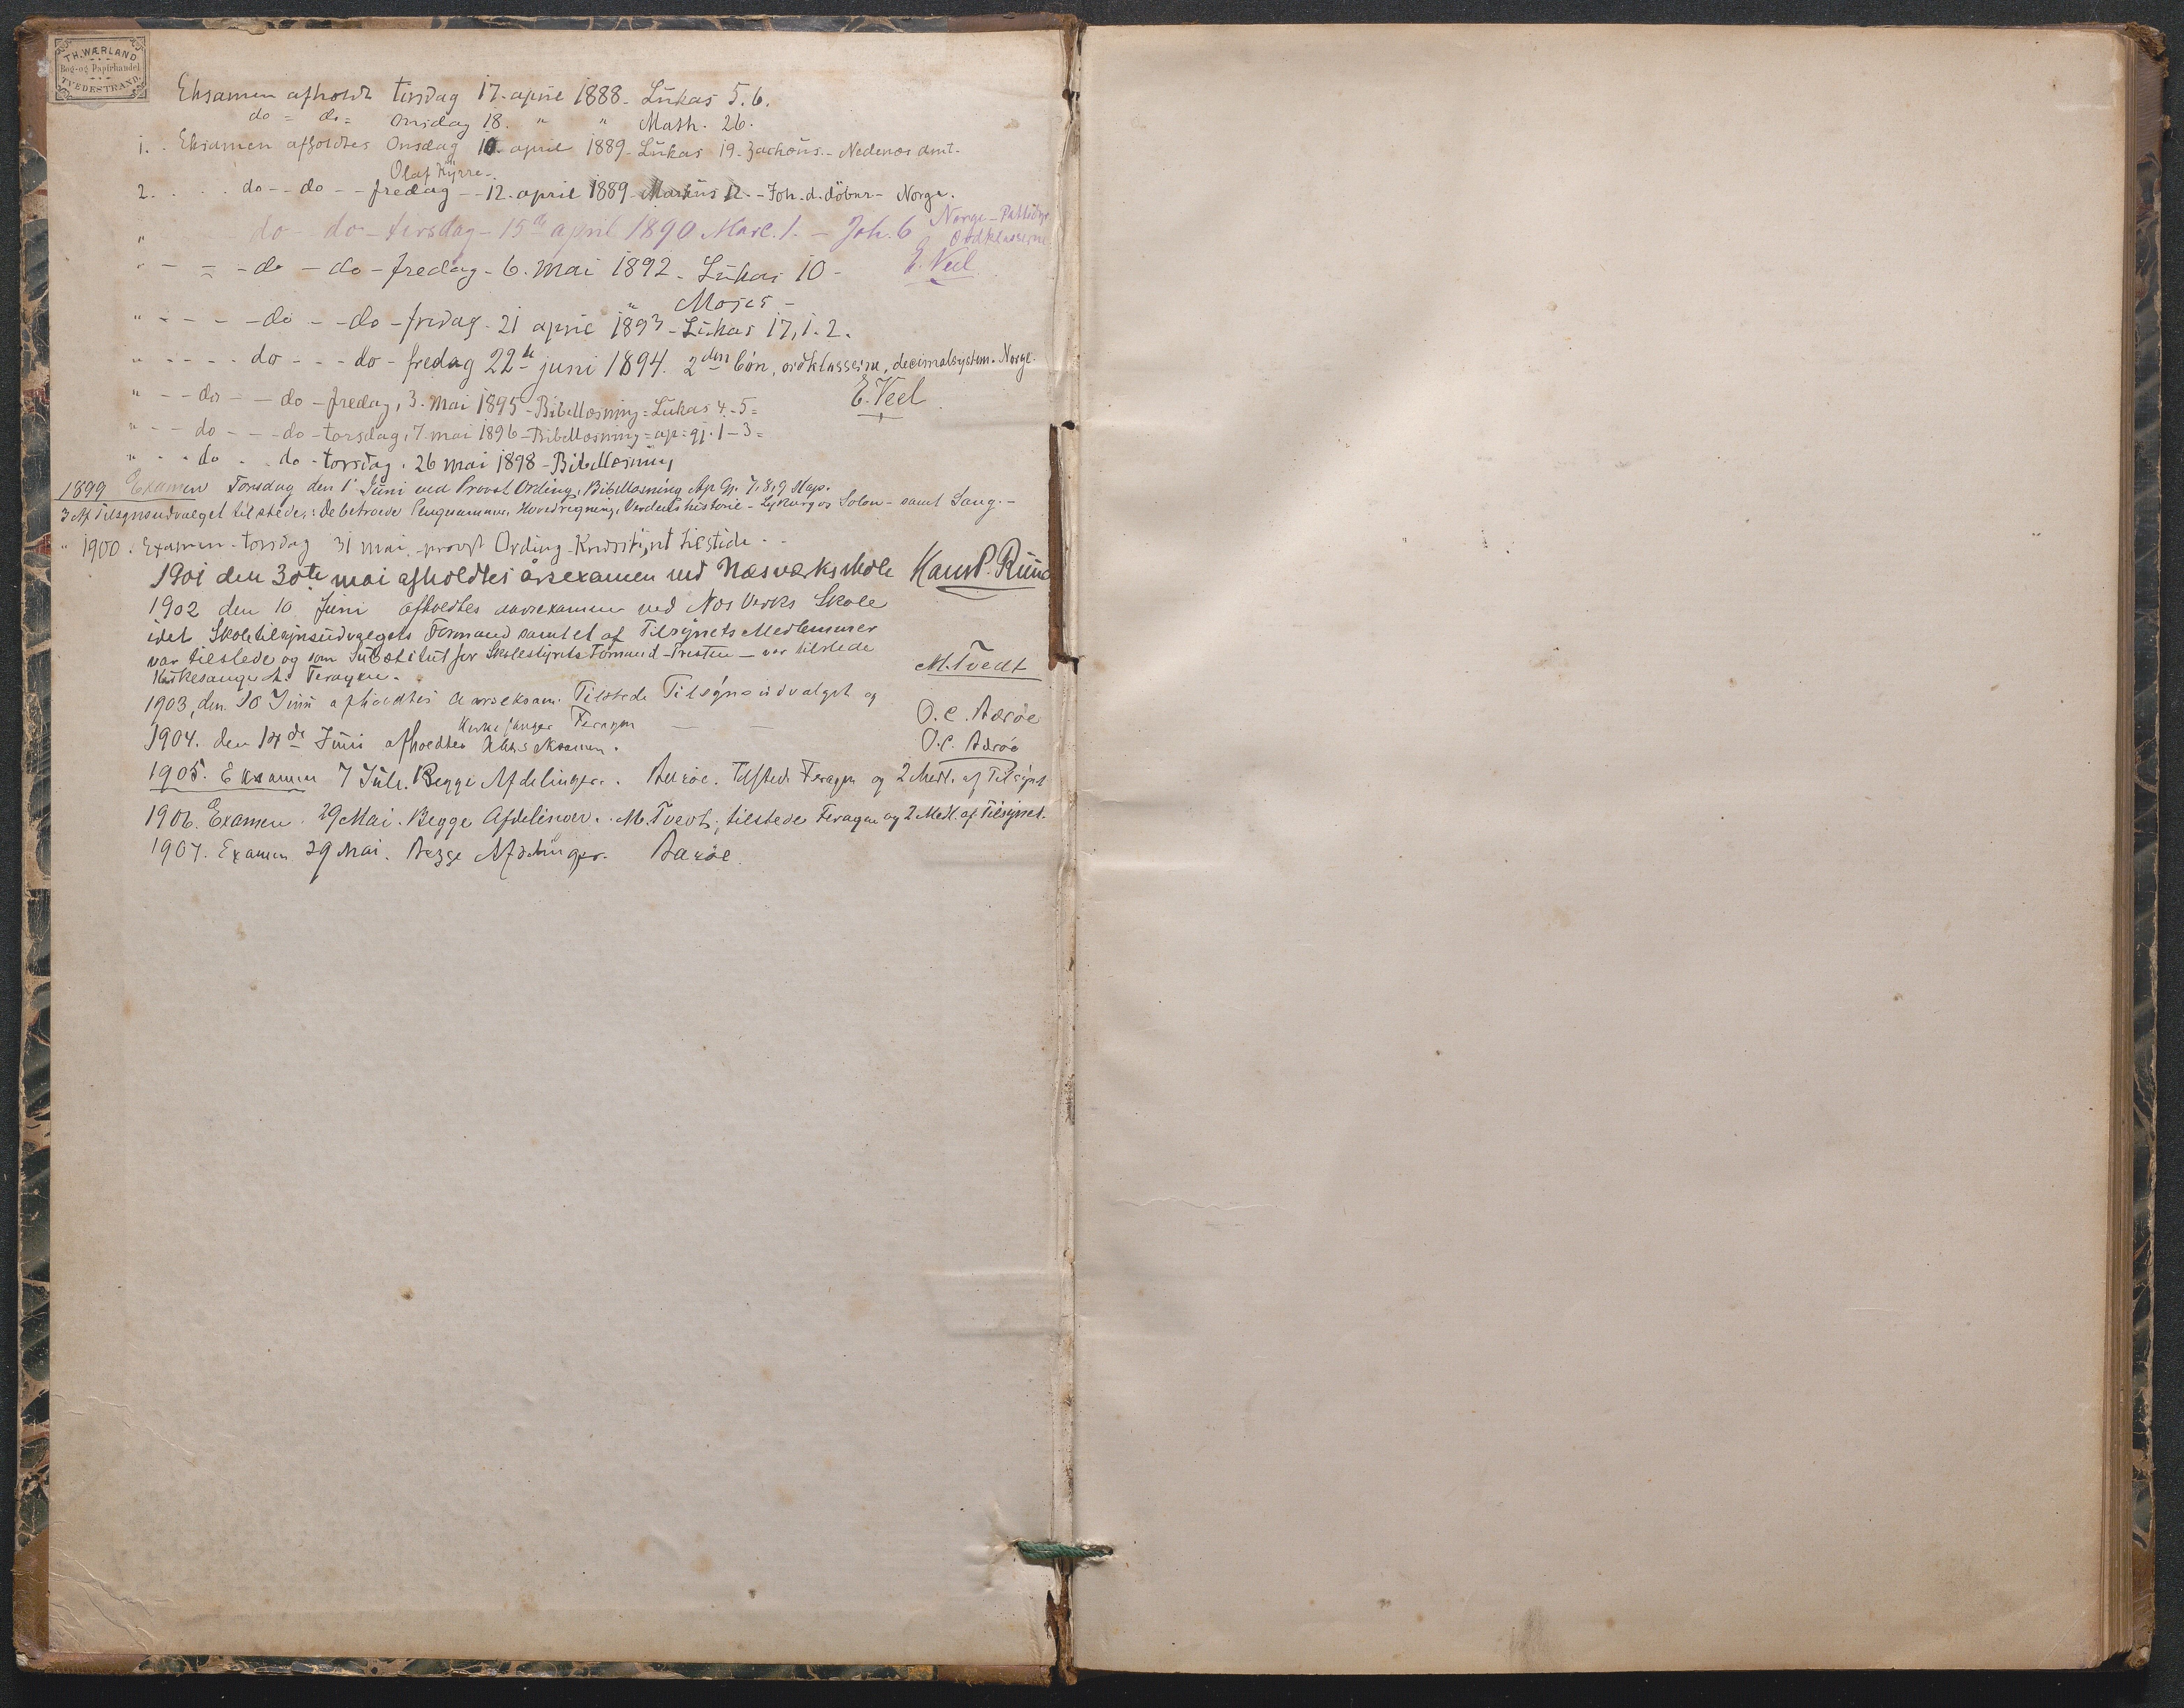 TH. WÆRLAND
Bog- og Papirhandel
TVEDESTRAND.
Eksamen afholdt tirsdag 17. april 1888 - Lukas 5. 6.
do = do = Onsdag 18. " " Math. 26.
1. . Eksamen afholdtes Onsdag 10. april 1889 - Lukas 19 - Zachæus - Nedenæs amt -
Olaf Kyrre -
2. . . . do - - do - - fredag - - 12. april 1889 - Markus 12 - Joh. d. döber - Norge.
" do - do - tirsdag - 15de april 1890 Marc. 1. - Joh. 6 Norge -
Ordklasserne
" - = - do - do - fredag - 6. mai 1892 - Lukas 10 - E. Veel
Moses -
" - - - - do - - do - fredag - 21 april 1893 - Lukas 17, 1. 2.
" - - - - do - - - do - fredag 22de juni 1894. 2den bön, ordklasserne, decimalsystem. Norge.
" - - do - - do - fredag, 3. mai 1895 - Bibellæsning = Lukas 4. - 5 = E. Veel
" - - do - - - do - torsdag, 7. mai 1896 - Bibellæsning = ap = gj. 1 - 3 =
" - - do . . do - torsdag . 26 mai 1898 - Bibellæsning
1899 Examen Torsdag den 1' Juni ved Provst Ording, Bibellæsning Ap. Gj. 7, 8, 9 Kap.
3 Af Tilsynsudvalget tilstede. : De betroede Pengesummer, Hovedregning, Verdenshistorie - Lykurgos Solon - samt Sang. -
" 1900. Examen - torsdag 31 mai. - provst Ording - tilstede . -
1901 den 30te mai afholdtes årsexamen ved Næsværks skole Hans P. Ruud
1902 den 10 Juni afholdtes aarsexamen ved Næs Verks Skole
idet Skoletilsynsudvalgets Formand samt et af Tilsynets Medlemmer
var tilstede og som Substitut for Skolestyrets Formand - Presten - var tilstede
Kirkesanger A. Feragen. M. Tvedt
1903, den 10 Juni afholdtes Aarseksam. Tilstede Tilsynsudvalget og
Kirkesanger Feragen — — O. C. Aarøe
1904. den 14de Juni afholdtes Aarseksamen. O. C. Aarøe
1905. Examen 7 Juli. Begge Afdelinger. Aarøe. Tilstede Feragen og 2 Medl. af Tilsynet
1906. Examen. 29 Mai. Begge Afdelinger. M. Tvedt; tilstede Feragen og 2 Medl. af Tilsynet.
1907. Examen 29 Mai. Begge Afdelinger. Aarøe.